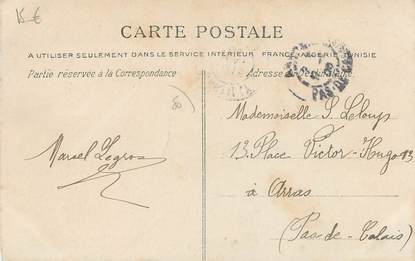 15 €
CARTE POSTALE
A UTILISER SEULEMENT DANS LE SERVICE INTÉRIEUR FRANCE, ALGÉRIE, TUNISIE
Partie réservée à la Correspondance
Adresse du Destinataire
PAS-DE-CALAIS
Mademoiselle S. Leloup
13. Place Victor-Hugo 13
à Arras
(Pas-de-Calais)
Marcel Legros